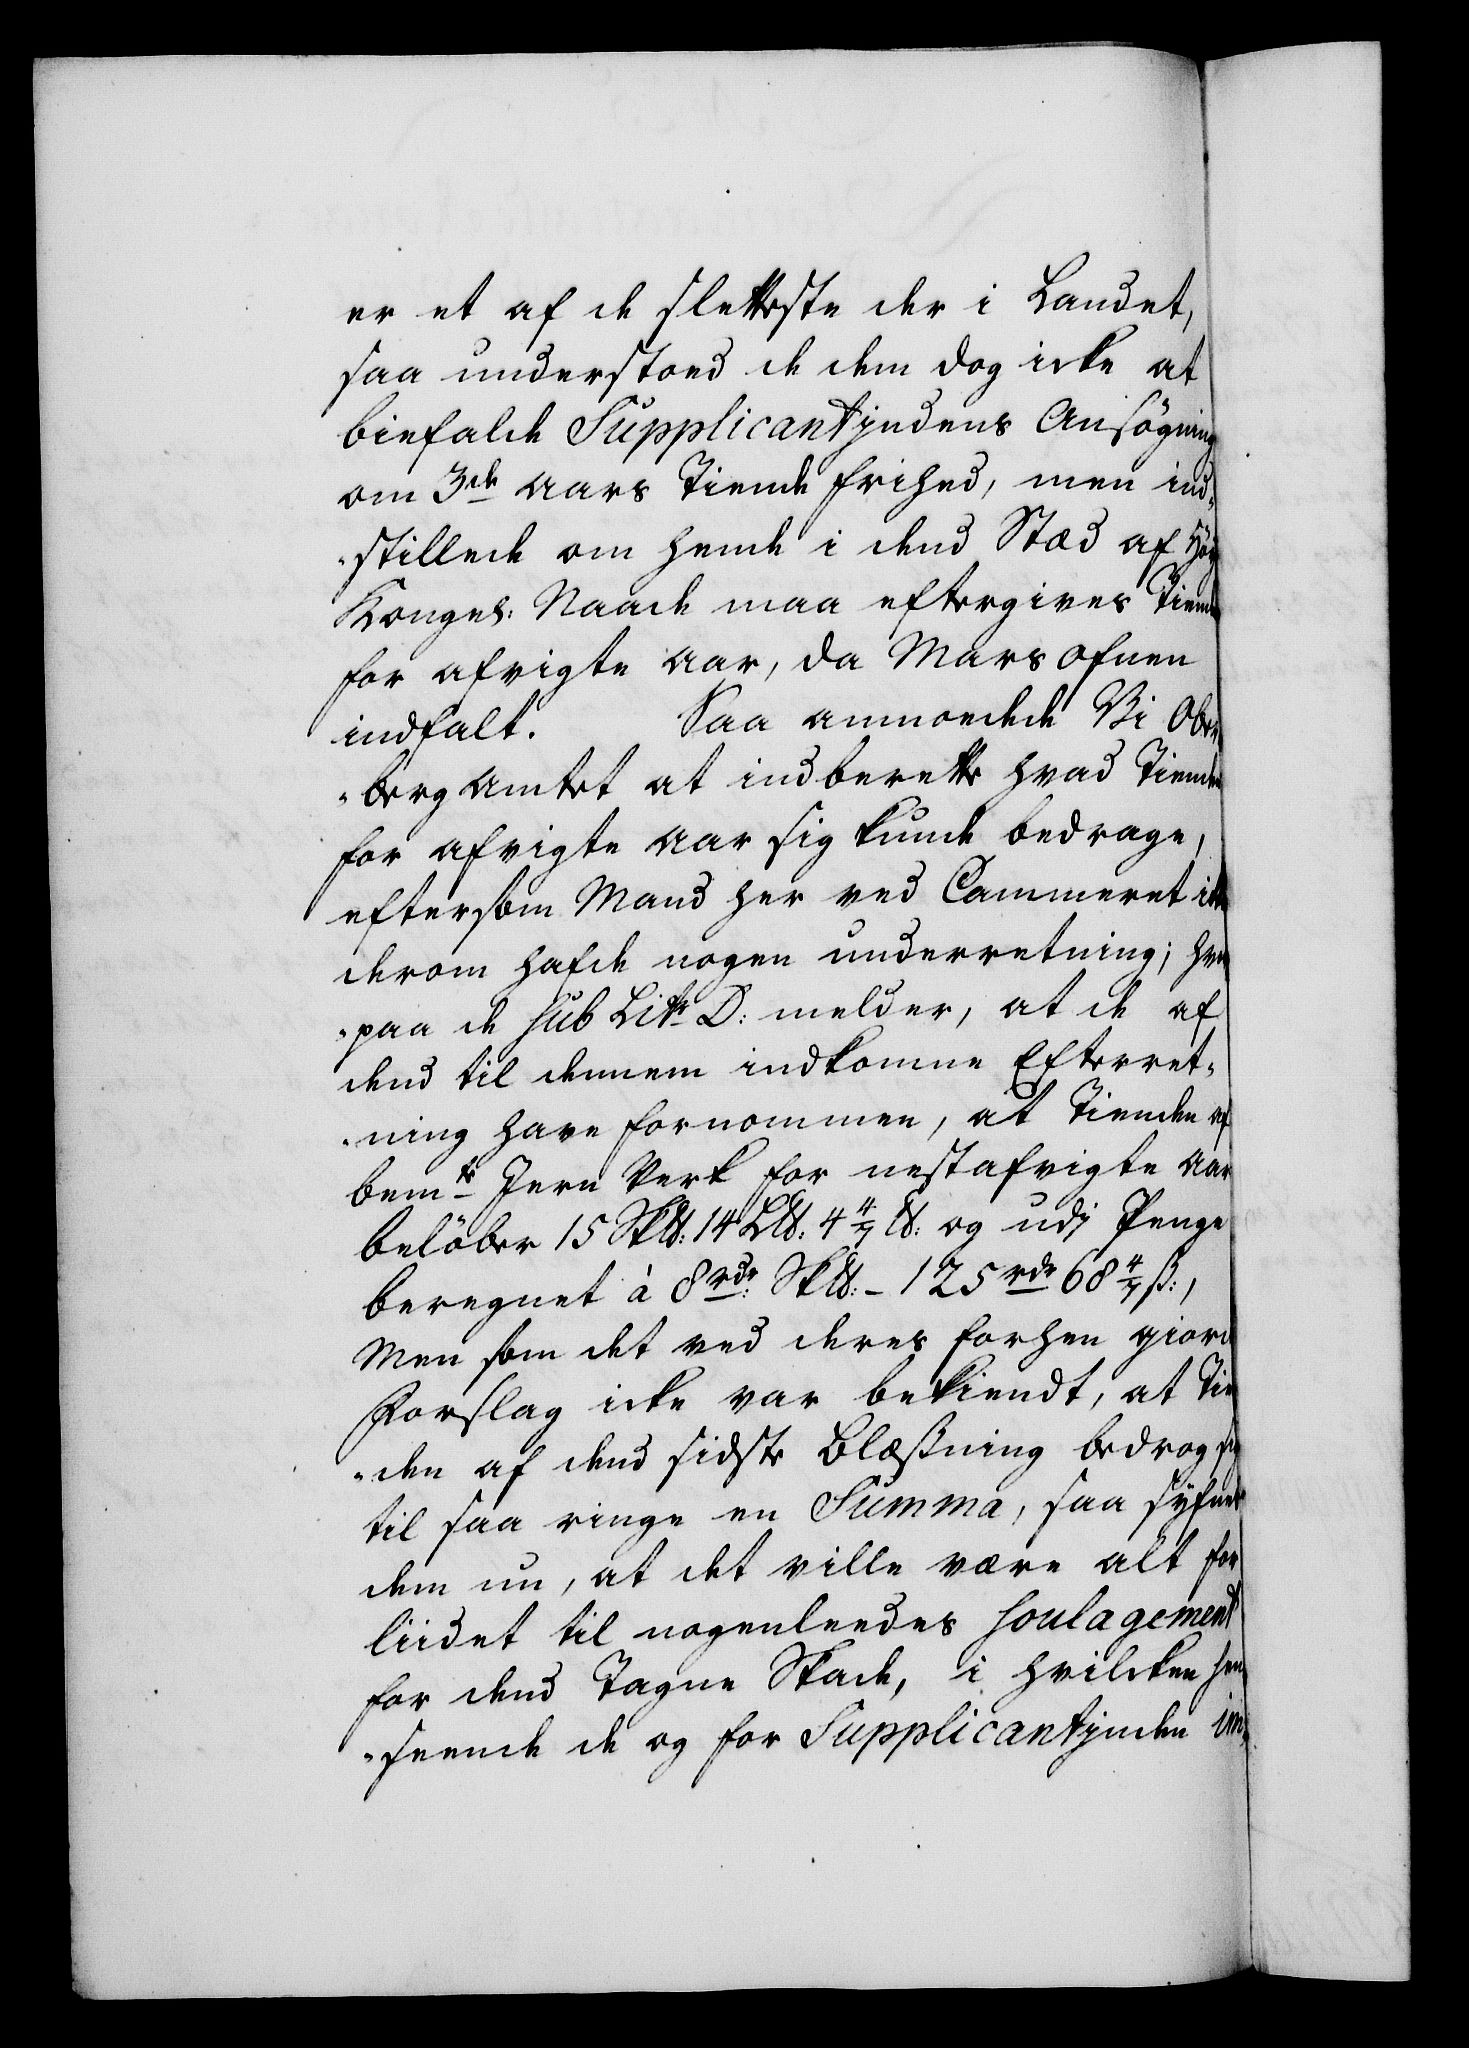 er et af de sletteste der i Landet,
saa understoed de dem dog icke at
biefalde Supplicantjndens Ansögning
om 3de Aars Tiende frihed, men ind-
-stillede om hende i dend Stæd af Høy
Kongel: Naade maa eftergives Tiende
for afvigte Aar, da Mars ofnen
indfalt. Saa anmoedede Vi Ober
-berg Amtet at indberette hvad Tienden
for afvigte Aar sig kunde bedrage,
eftersom Mand her ved Cammeret icke
derom hafde nogen underretning; hvor
-paa de sub Litr D: melder, at de af
dend til dennem indkomne Efterret-
-ning have fornommen, at Tienden af
bemte Jern Verk for nestafvigte Aar
belöber 15 Sk℔: 14 L℔: 4 4/7 ℔: og udi Penge
beregnet à 8 rdr: Sk℔: - 125 rdr 68 4/7 ß:,
Men som det ved deres forhen giorde
Forslag icke var bekiendt, at Tien
-den af dend sidste Blæßning bedrog sig
til saa ringe en Summa, saa syfnes
dem nu, at det ville være alt for
liidet til nogenleedes soulagement
for dend Tagne Skade, i hvilcken hen
-seende de og for Supplicantjnden in-